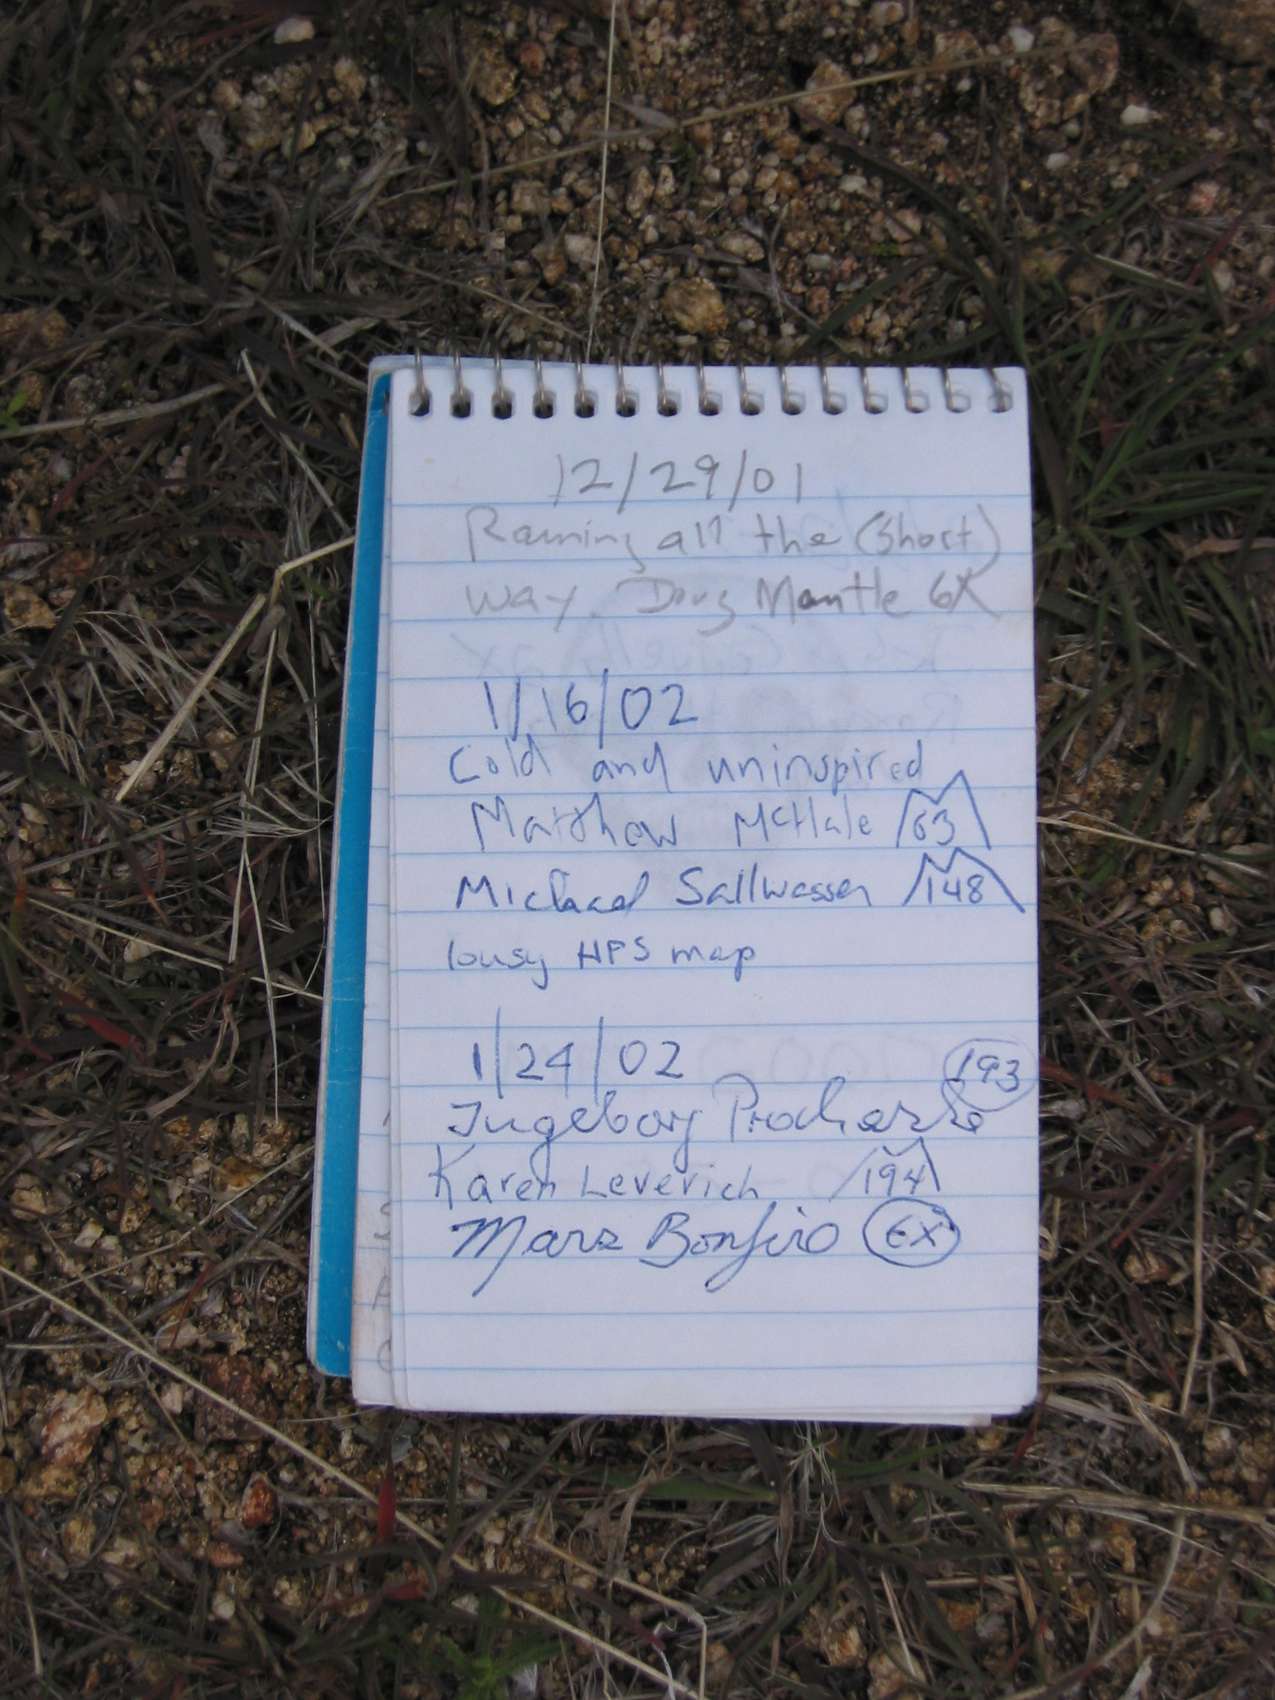 12/29/01
Raining all the (short)
way. Doug Mantle 6X
1/16/02
Cold and uninspired
Matthew McHale 63
Michael Sallwasser 148
lousy HPS map
1/24/02 193
Ingeborg Prochazka
Karen Leverich 194
Mars Bonfire 6X